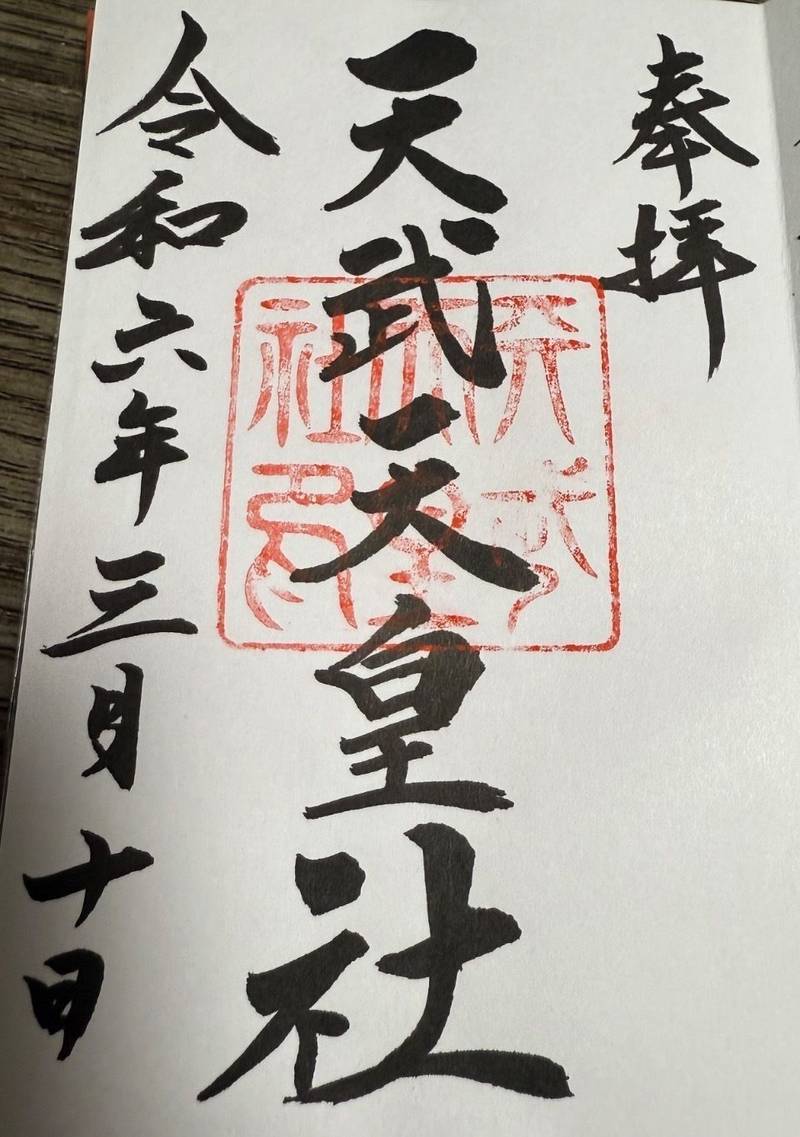 奉拝
天武天皇社
天武
天皇
社印
令和六年三月十日